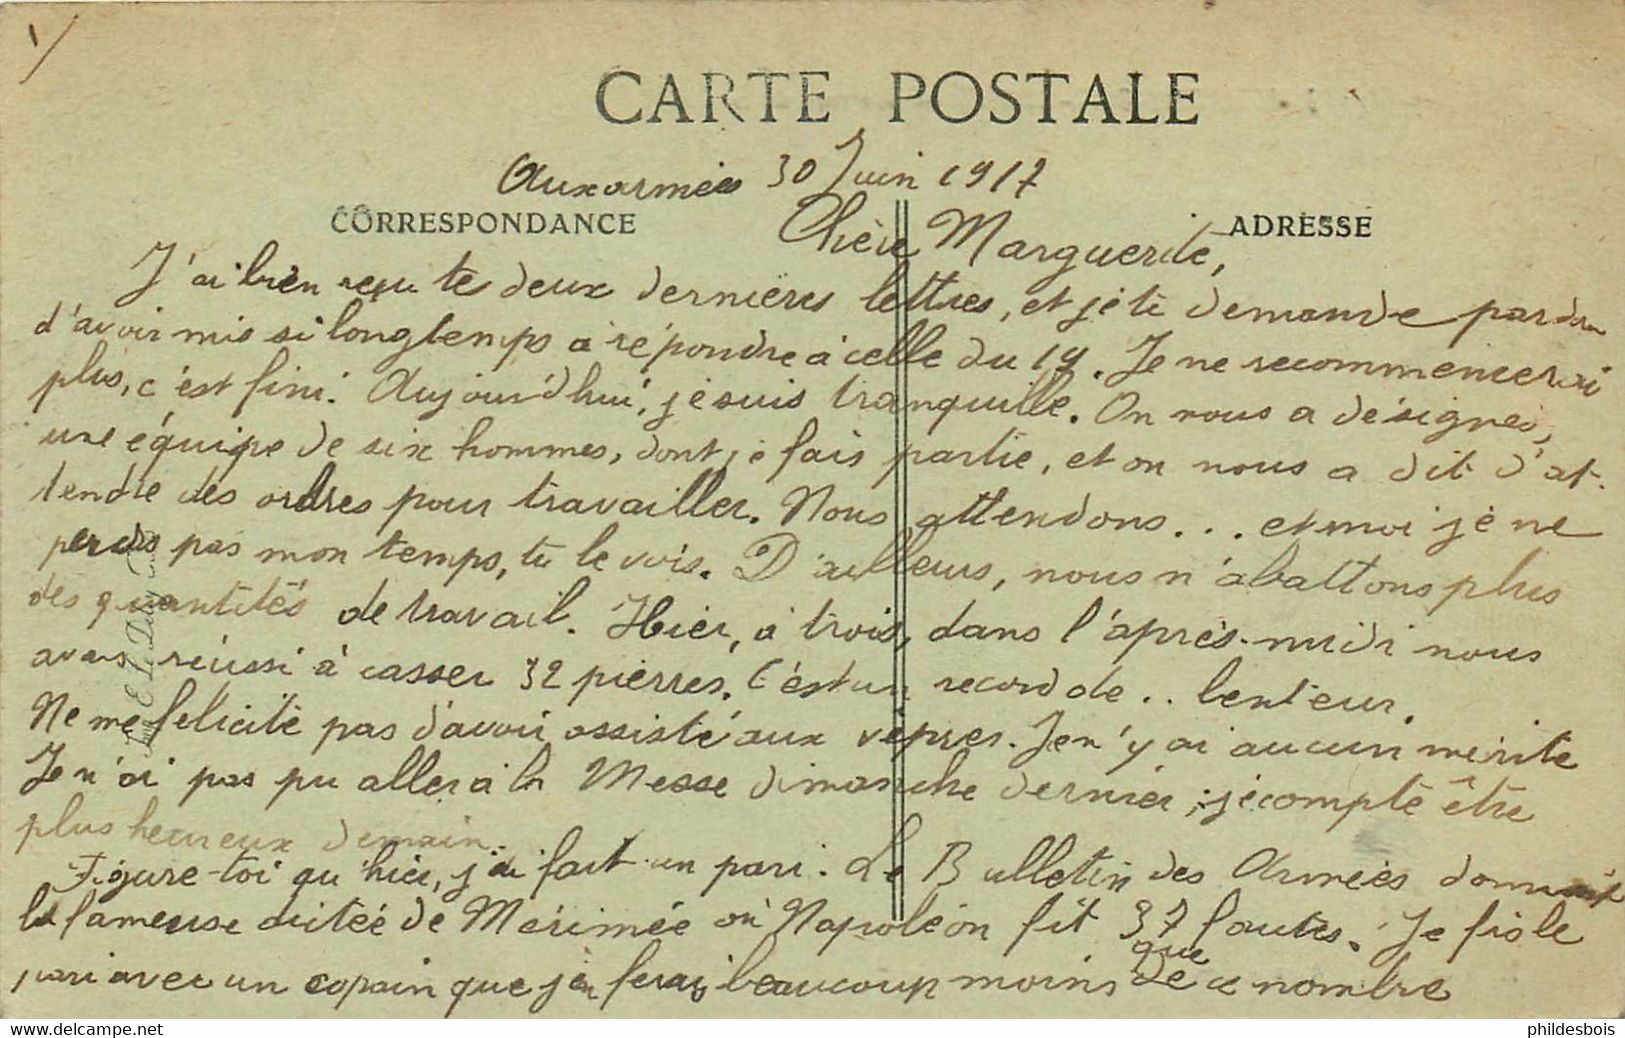 1/
CARTE POSTALE
Aux armées 30 Juin 1917
CORRESPONDANCE
ADRESSE
Chère Marguerite,
J'ai bien reçu tes deux dernières lettres, et je te demande pardon
d'avoir mis si longtemps à répondre à celle du 19. Je ne recommencerai
plus, c'est fini. Aujourd'hui, je suis tranquille. On nous a désignés,
une équipe de six hommes, dont je fais partie, et on nous a dit d'at-
tendre des ordres pour travailler. Nous attendons... et moi je ne
perds pas mon temps, tu le vois. D'ailleurs, nous n'abattons plus
des quantités de travail. Hier, à trois, dans l'après-midi nous
avons réussi à casser 32 pierres. C'est un record de.. lenteur.
Ne me félicite pas d'avoir assisté aux vêpres. Je n'y ai aucun mérite
Je n'ai pas pu aller à la Messe dimanche dernier ; je compte être
plus heureux demain.
Figure-toi qu'hier, j'ai fait un pari. Le Bulletin des Armées donnait
la fameuse dictée de Mérimée où Napoléon fit 37 fautes. Je fis le
pari avec un copain que j'en ferai beaucoup moins que de ce nombre
delcampe.net
phildesbois